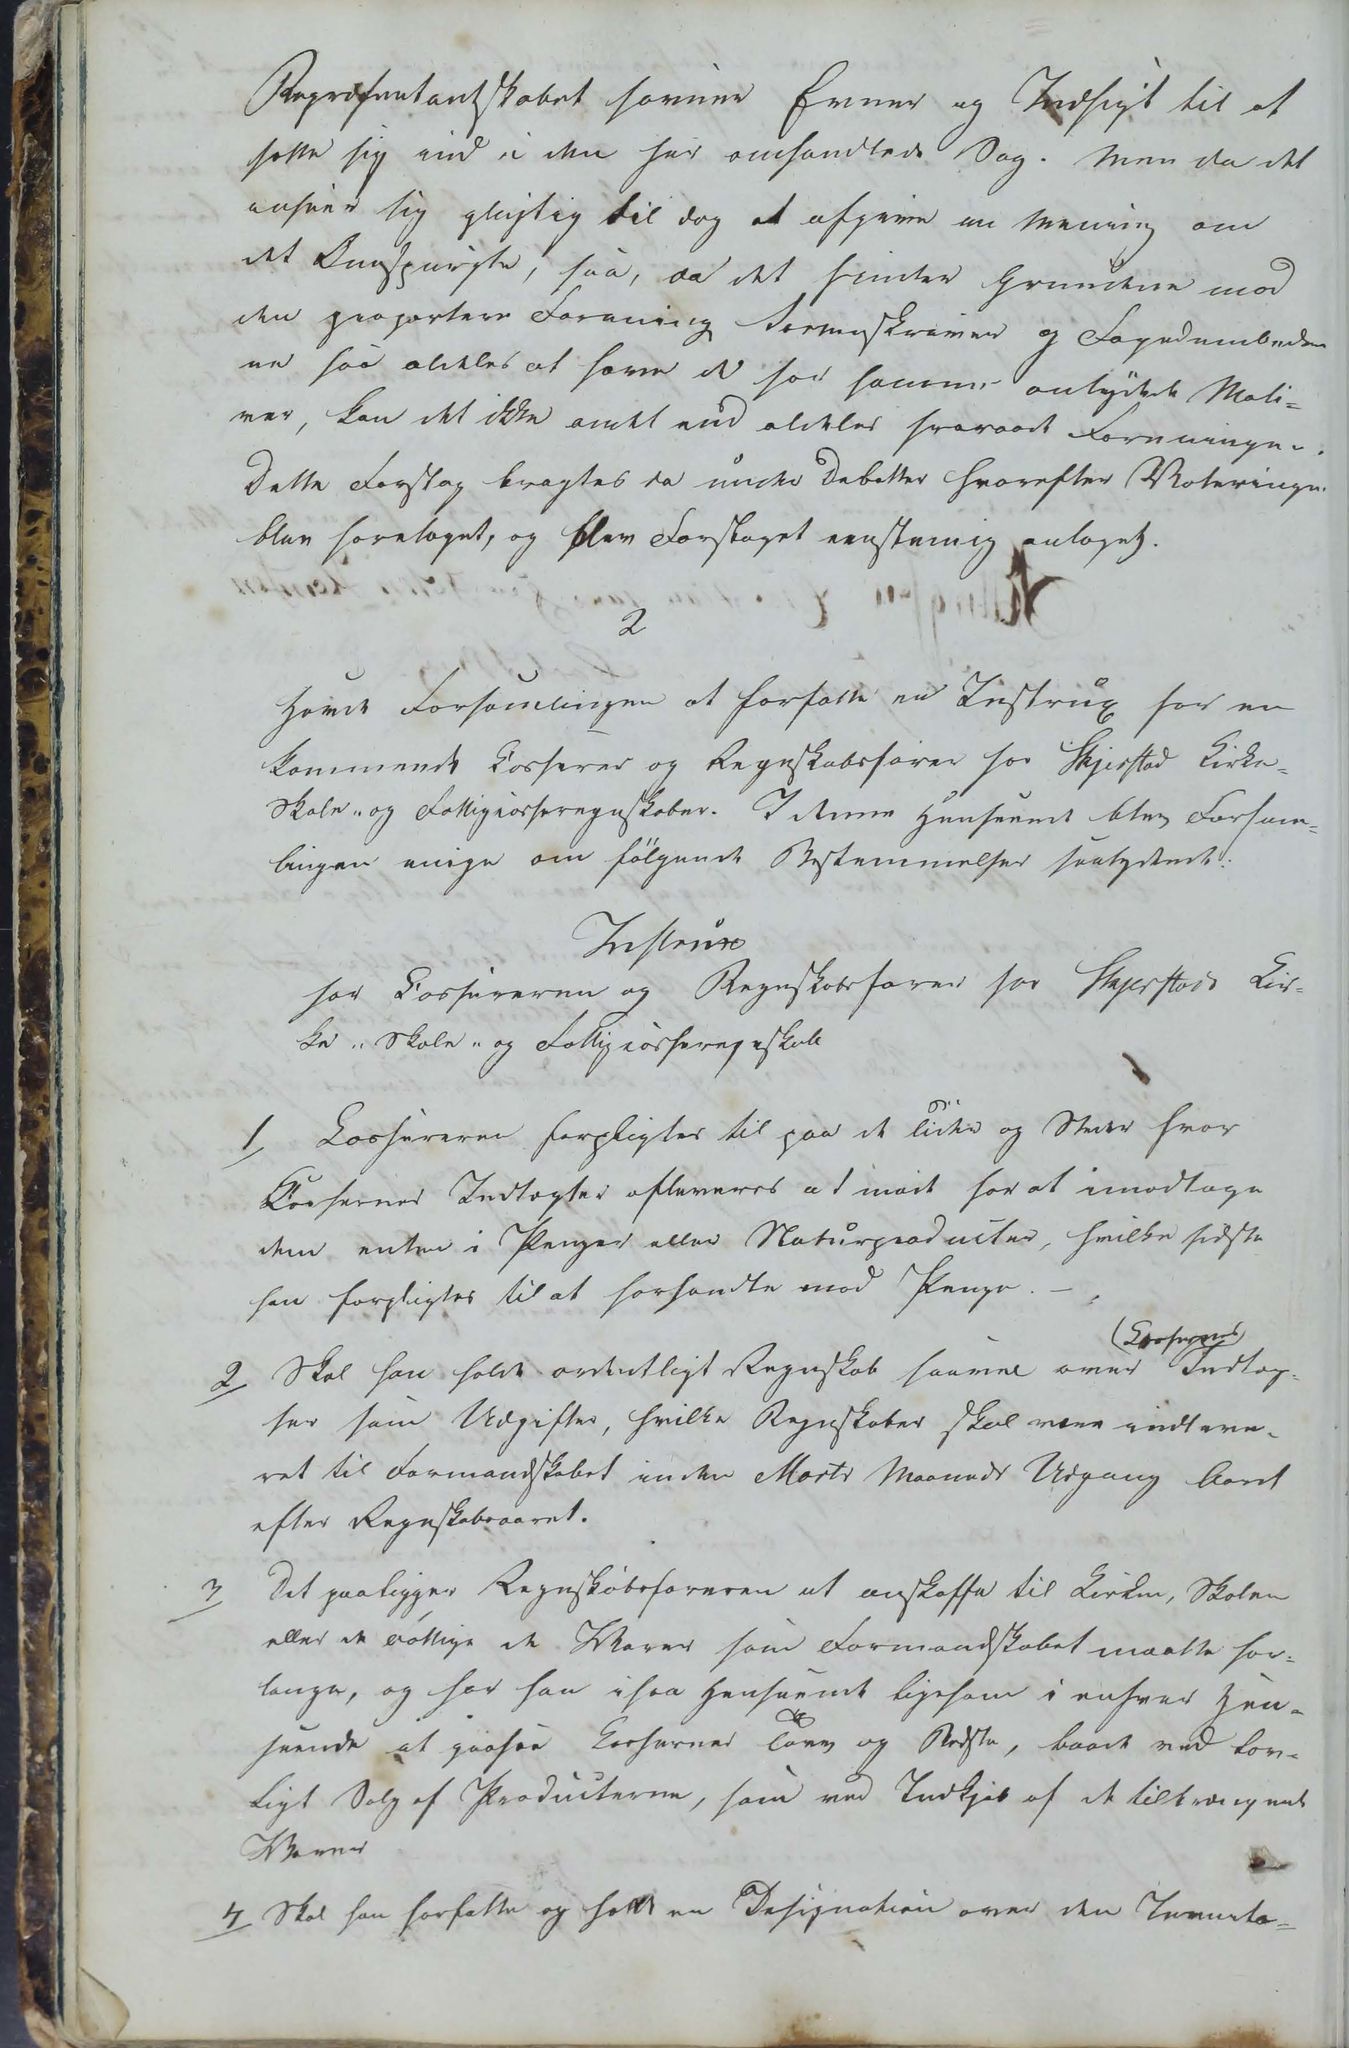 Repræsentantskabet savner Evner og Indsigt til at
sette sig ind i den her omhandlede Sag. Men da det
anseer sig pligtig til dog at afgive en Mening om
det Omspurgte, saa, da det finder Grundene mod
den projecterte Forening Sorenskriver og Fogedembeder
ne saa aldeles at hæve de for samme antydede Moti-
ver, kan det ikke andet end aldeles fraraade Foreningen.
Dette Forslag bragtes da under Debatter hvorefter Voteringen
blev foretaget, og blev Forslaget eenstemig antaget.
2
Havde Forsamlingen at forfatte en Instrux for en
kommende Casserer og Regnskabsfører for Skjerstad Kirke-
Skole- og Fattigcasseregnskaber. I denne Henseende blev Forsam-
lingen enige om følgende Bestemmelser saalydende:
Instrux
for Cassereren og Regnskabsfører for Skjerstads Kir-
ke- Skole- og Fattigcasseregnskab
1/ Cassereren forpligtes til paa de Tider og Steder hvor
Cassernes Indtægter afleveres at møde for at imodtage
dem enten i Penger eller Naturproducter, hvilke sidste
han forpligtes til at forhandle mod Penge. –
(Cassernes)
2/ Skal han holde ordentligt Regnskab saavel over Indtæg-
ter som Udgifter, hvilke Regnskaber skal være indleve-
ret til Formandskabet inden Marts Maaneds Udgang Aaret
efter Regnskabsaaret.
3/ Det paaligger Regnskabsføreren at anskaffe til Kirken, Skolen
eller de Fattige de Varer som Formandskabet maatte for-
lange, og har han i saa Henseende ligesom i enhver Hen-
seende at paasee Cassernes Tarv og Bedste, baade ved for-
ligt Salg af Producterne, som ved Indkjøb af de tiltrængende
Varer
4/ Skal han forfatte og holde en Designation over den Inventa-